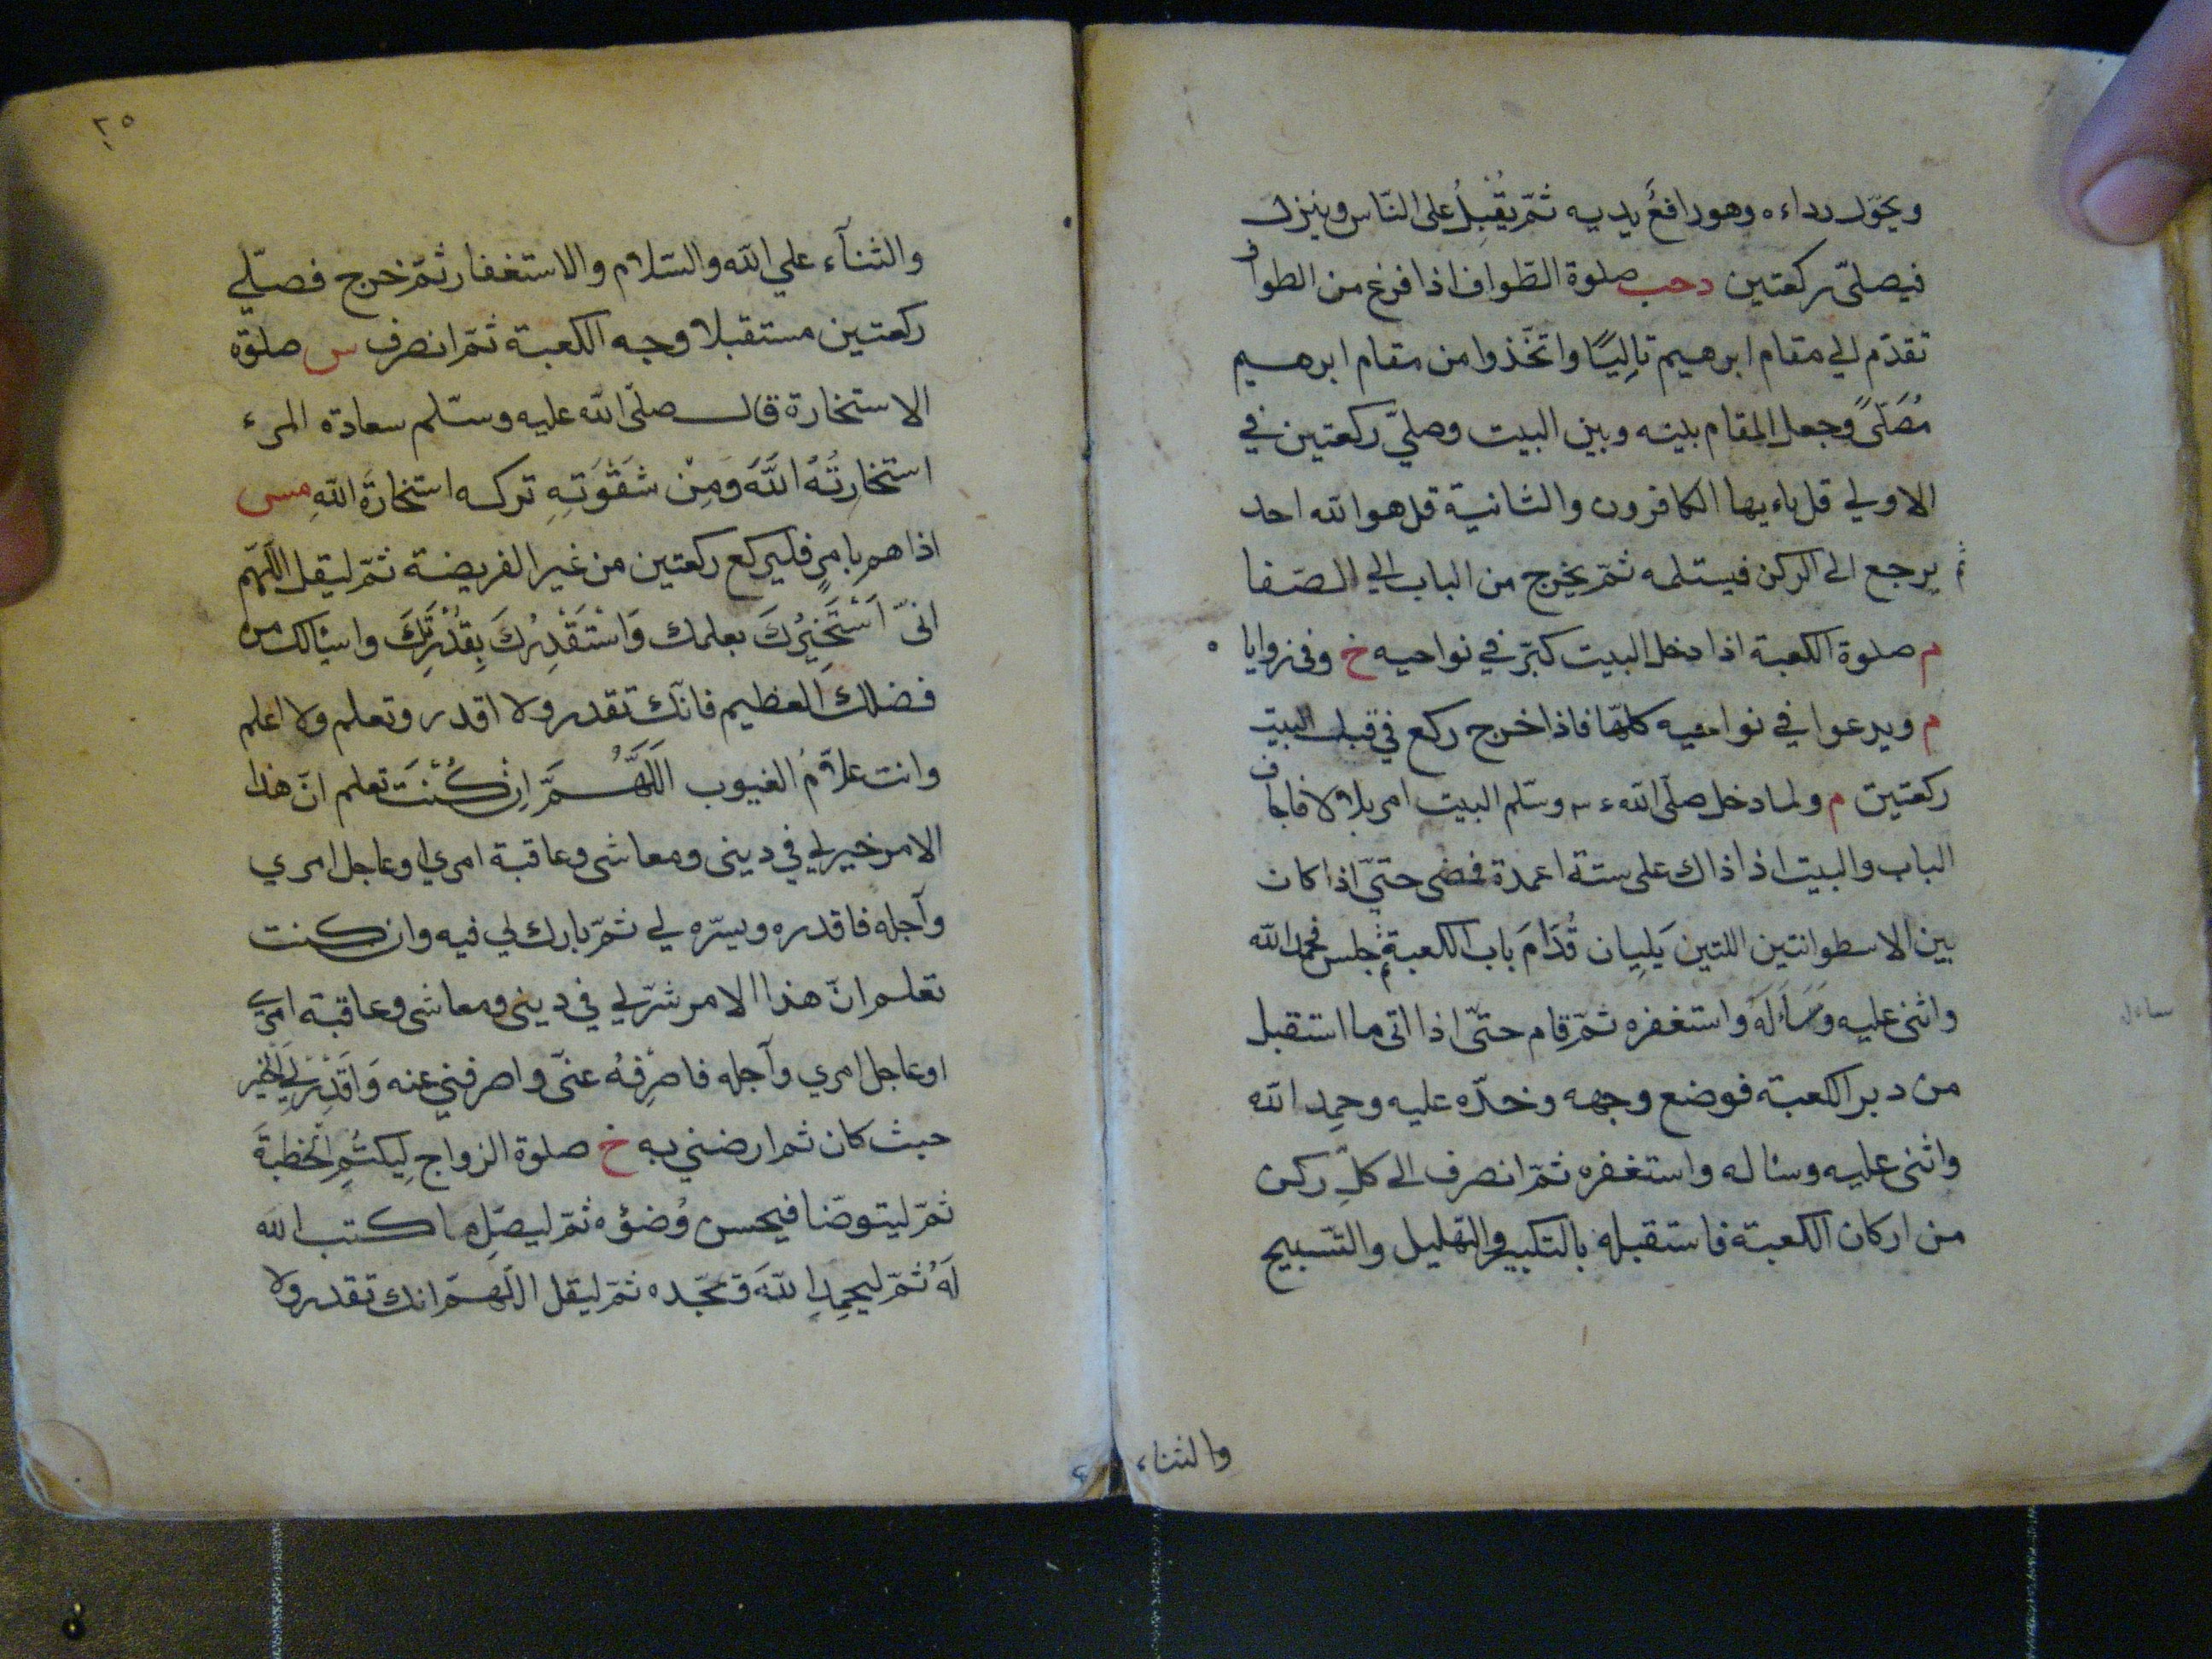 ويحوّل رداءه وهو رافعٌ يديه ثمّ يُقْبِلُ على النّاس وينزل
فيصلّى ركعتين دحب صلوة الطّواف اذا فرغ من الطواف
تقدّم الي مقام ابرهيم تالِيًا واتخّذوا من مقام ابرهيم
مُصَلّىً وجعل المقام بينه وبين البيت وصليّ ركعتين في
الاولي قل ياءيها الكافرون والثانية قل هو الله احد
ثم يرجع الى الركن فيستلمه ثمّ يخرج من الباب الي الصّفا
م صلوة الكعبة اذا دخل البيت كبّر في نواحيه خ وفى زوايا ه
م ويدعوا في نواحيه كلهّا فاذا خرج ركع في قبل البيت
ركعتين م ولما دخل صلّى الله ع س وسّلم البيت امر بلالا فاجاف
الباب والبيت اذ اذاك على ستة اعمدة فمضى حتيّ اذا كان
بين الاسطوانتين اللتين يَلِيان قُدّامَ باب الكعبة ثم جلس فحمد الله
واثنى عليه وَسَاءلَهُ واستغفره ثمّ قام حتىّ اذا اتى ما استقبل
ساءل
من دبر الكعبة فوضع وجهه وخدّه عليه وحمِد الله
واثنى عليه وسئاله واستغفره ثمّ انصرف الى كلّ ركن
من اركان الكعبة فاستقبله بالتكبير والتهليل والتسبيح
والثناء
٢٥
والثنآء علي الله والسّلام والاستغفار ثمّ خرج فصلّي
ركعتين مستقبلا وجه الكعبة ثمّ انصرف س صلوة
الاستخارة قال صلّى الله عليه وسّلم سعادة المرء
استخارتُهُ اللّهَ ومِنْ شقوَتِهِ تركه استخارةَ اللهِ مسى
اذا هم بامرٍ فليركع ركعتين من غير الفريضة ثمّ ليقل اللّهمّ
انىّ اَسْتَخِيْرُكَ بعلمك وَاسْتَقْدِرُكَ بِقُدْرَتِكَ واسئالك من
فضلك العظيم فانّك تقدر ولا اقدر وتعلم ولا اعلم
وانت علاّمُ الغيوب اللّهُمَّ اِنْ كُنْتَ تعلم انّ هذا
الامر خير لي في دينى ومعاشى وعاقبة امري او عاجل امري
وآجله فاقدره ويسّره لي ثمّ بارك لي فيه وان كنت
تعلم انّ هذا الامر شرّ لي في دينى ومعاشى وعاقبة امري
او عاجل امري وآجله فاصْرِفْهُ عنىّ واصرفني عنه وَاقْدِرْ لِيَ الخير
حيث كان ثم ارضني به خ صلوة الزواج لِيكتُمِ الخطبةَ
ثمّ ليتوضّا فيحسن وُضوُه ثمّ ليصلِّ ما كتب الله
لَهُ ثمّ ليحمِدِ اللّهَ ويمجّده ثمّ ليقل اللّهمّ انك تقدر ولا